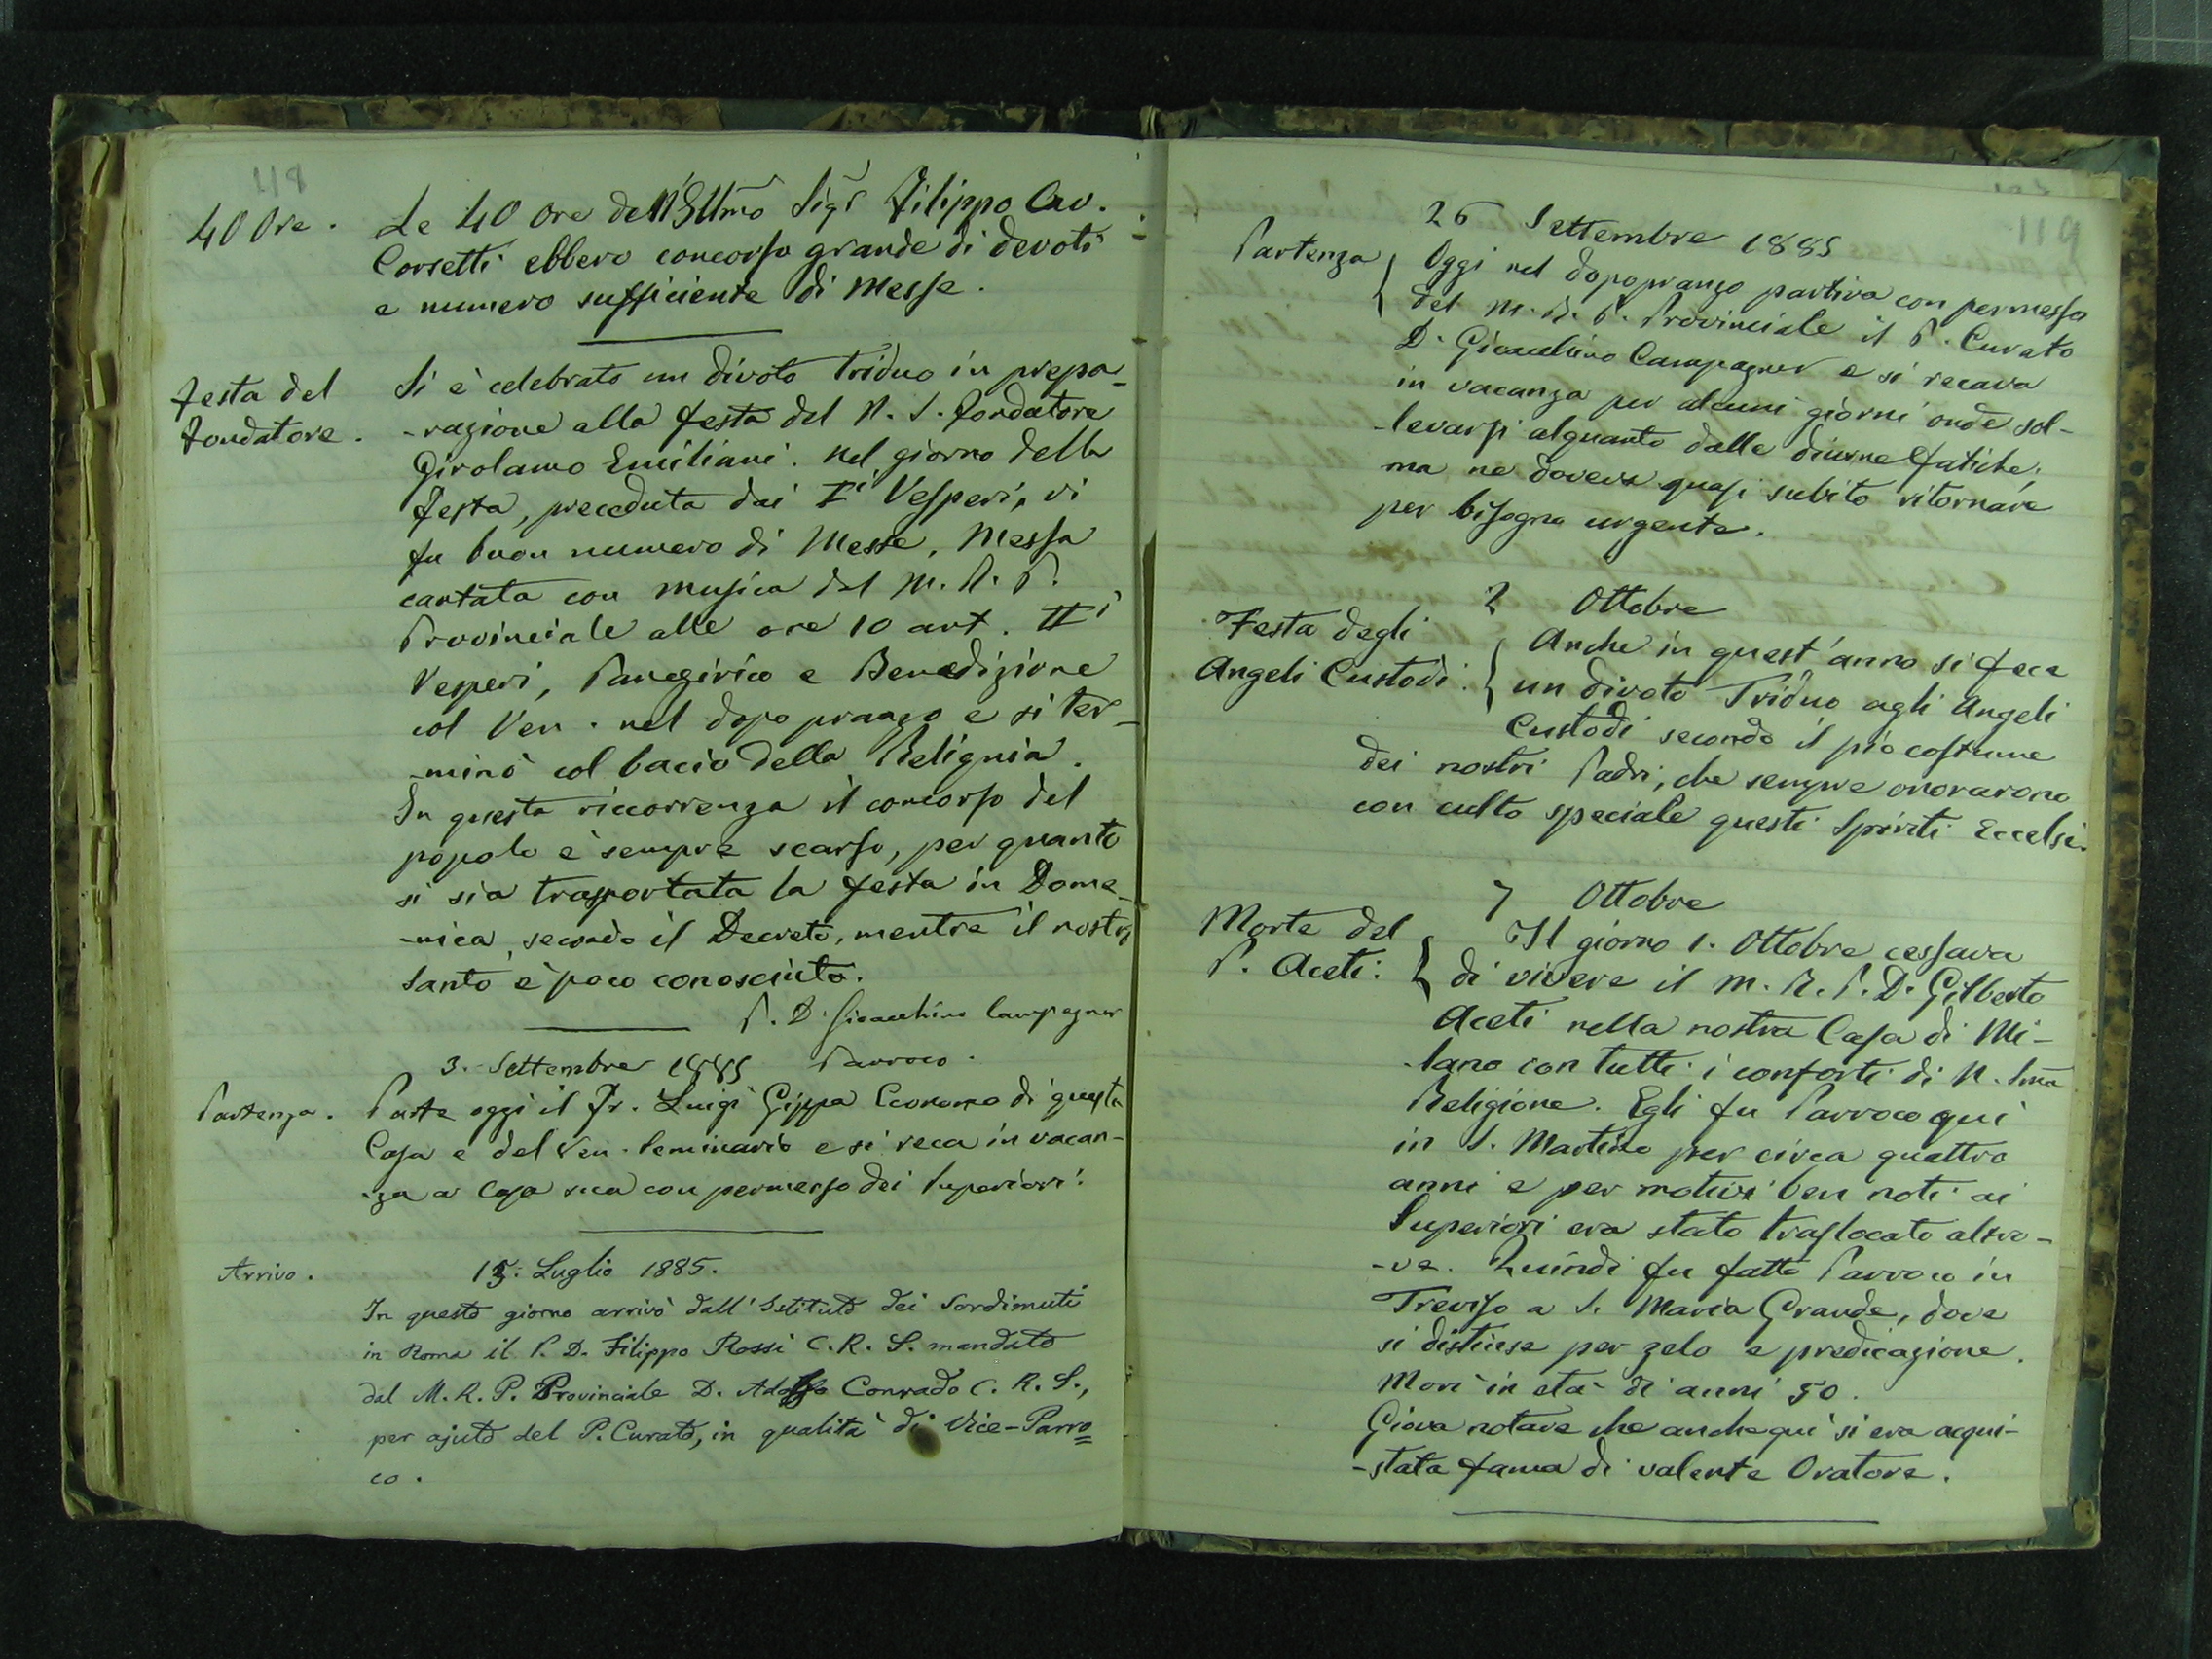 118
40 Ore. Le 40 Ore dell'Illmo Sigr Filippo Cav.
Corsetti ebbero concorso grande di devoti
e numero sufficiente di Messe.
Festa del Si è celebrato un divoto Triduo in prepa-
Fondatore. -razione alla festa del N. S. Fondatore
Girolamo Emiliani. Nel giorno della
Festa, preceduta dai Ii Vesperi, vi
fu buon numero di Messe, Messa
cantata con musica dal M. R. P.
Provinciale alle ore 10 ant. IIi
Vesperi, Panegirico e Benedizione
col Ven. nel dopo pranzo e si ter-
-minò col bacio della Reliquia.
In questa riccorrenza il concorso del
popolo è sempre scarso, per quanto
si sia trasportata la festa in Dome-
-nica, secondo il Decreto, mentre il nostro
Santo è poco conosciuto.
P. D. Gioacchino Campagner
3. Settembre 1885 Parroco.
Partenza. Parte oggi il Fr. Luigi Gippa Economo di questa
Casa e del Ven. Seminario e si reca in vacan-
-za a Casa sua con permesso dei Superiori.
Arrivo. 15. Luglio 1885.
In questo giorno arrivò dall'Istituto dei Sordimuti
in Roma il P. D. Filippo Rossi C. R. S. mandato
dal M. R. P. Provinciale D. Adolfo Conrado C. R. S.,
per ajuto del P. Curato, in qualità di Vice-Parro=
co.
119
26 Settembre 1885
Partenza Oggi nel dopopranzo partiva con permesso
del M. R. P. Provinciale il P. Curato
D. Gioacchino Campagner e si recava
in vacanza per alcuni giorni onde sol-
-levarsi alquanto dalle diurne fatiche;
ma ne dovea quasi subito ritornare
per bisogno urgente.
2 Ottobre
Festa degli Anche in quest'anno si fece
Angeli Custodi. un divoto Triduo agli Angeli
Custodi secondo il pio costume
dei nostri Padri, che sempre onorarono
con culto speciale questi Spiriti Eccelsi.
7 Ottobre
Morte del Il giorno 1. Ottobre cessava
P. Aceti: di vivere il M. R. P. D. Gilberto
Aceti nella nostra Casa di Mi-
-lano con tutti i conforti di N. Sma
Religione. Egli fu Parroco qui
in S. Martino per circa quattro
anni e per motivi ben noti ai
Superiori era stato traslocato altro-
-ve. Quindi fu fatto Parroco in
Treviso a S. Maria Grande, dove
si distinse per zelo e predicazione.
Morì in età di anni 50.
Giova notare che anche qui si era acqui-
-stata fama di valente Oratore.